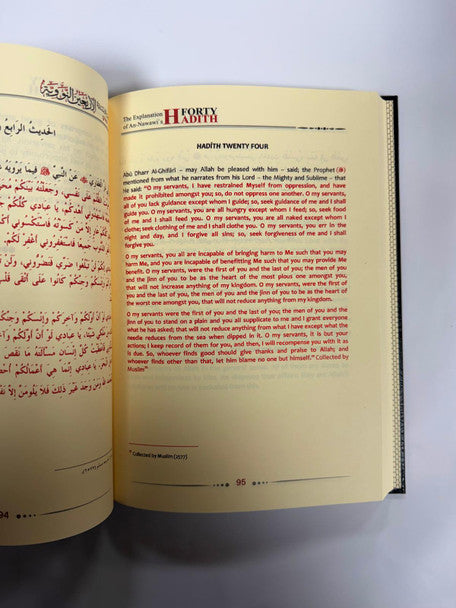 الأربعين النووية
الحديث الرابع
عن النبي ﷺ فيما يرويه
على نفسي، وجعلته بينكم
أهدكم، يا عبادي كلكم
فاستكسوني
جميعا فاستغفروني أغفر لكم،
تبلغوا ضري فتضروني، ولن
وجنكم كانوا على أتقى
لو أن أولكم وآخركم وإنسكم
شيئا، يا عبادي لو أن أولكم
فأعطيت كل إنسان مسألته ما نقص
يا عبادي، إنما هي أعمالكم
وجد غير ذلك فلا يلومن إلا
94
The Explanation
of An-Nawawi's
FORTY
HADITH
HADĪTH TWENTY FOUR
Abū Dharr Al-Ghifārī – may Allah be pleased with him – said; the Prophet (ﷺ)
mentioned from what he narrates from his Lord – the Mighty and Sublime – that
he said: "O my servants, I have restrained Myself from oppression, and have
made it prohibited amongst you; so, do not oppress one another. O my servants,
all of you lack guidance except whom I guide; so, seek guidance of me and I shall
guide you. O my servants, you are all hungry except whom I feed; so, seek food
of me and I shall feed you. O my servants, you are all naked except whom I
clothe; seek clothing of me and I shall clothe you. O my servants, you err in the
night and day, and I forgive all sins; so, seek forgiveness of me and I shall
forgive you.
O my servants, you all are incapable of bringing harm to Me such that you may
harm Me, and you are incapable of benefitting Me such that you may provide Me
benefit. O my servants, were the first of you and the last of you; the men of you
and the jinn of you to be as the heart of the most pious one amongst you;
that will not increase anything of my kingdom. O my servants, were the first of
you and the last of you, the men of you and the jinn of you to be as the heart of
the worst one amongst you, that will not reduce anything from my kingdom.
O my servants, were the first of you and the last of you; the men of you and the
jinn of you to stand on a plain and you all supplicate to me and I grant everyone
what he has asked; that will not reduce anything from what I have except what the
needle reduces from the sea when dipped in it. O my servants, it is but your
actions; I keep record of them for you, and then, I will recompense you with it as
is due. So, whoever finds good should give thanks and praise to Allah; and
whoever finds other than that, let him blame no one but himself." Collected by
Muslim
Collected by Muslim (2577)
95